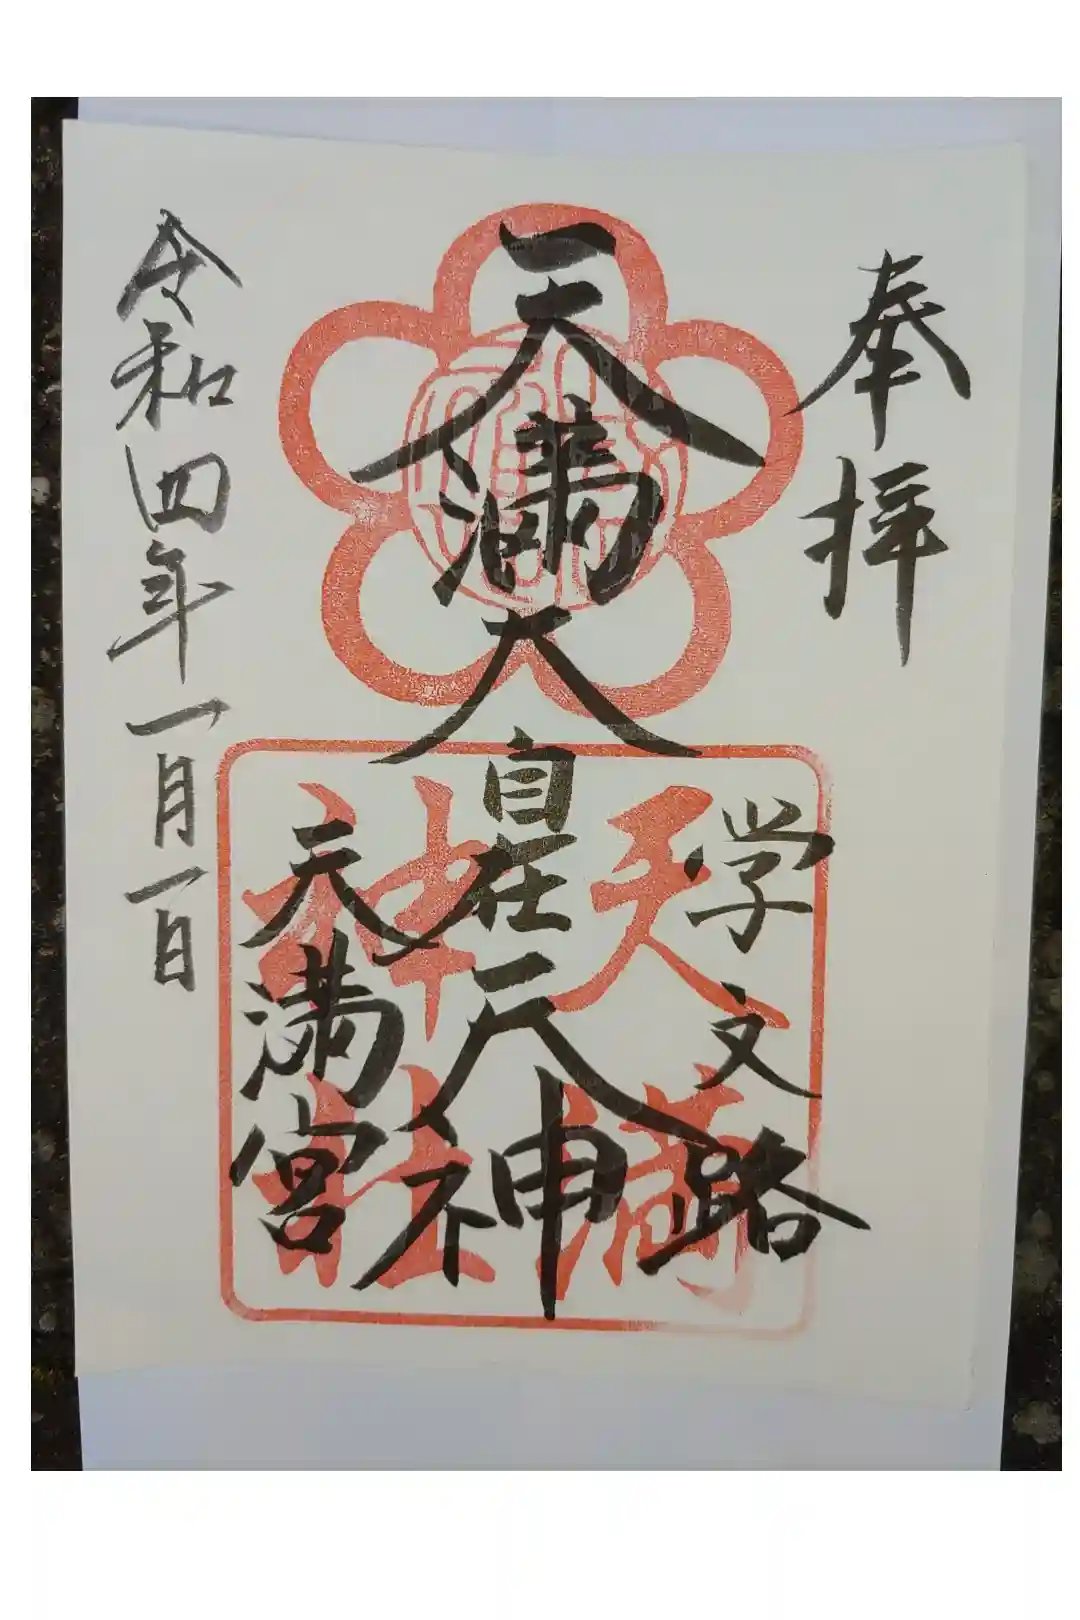 奉拝
学文路
天満大自在天神
天満宮
令和四年一月一日
天満
神社